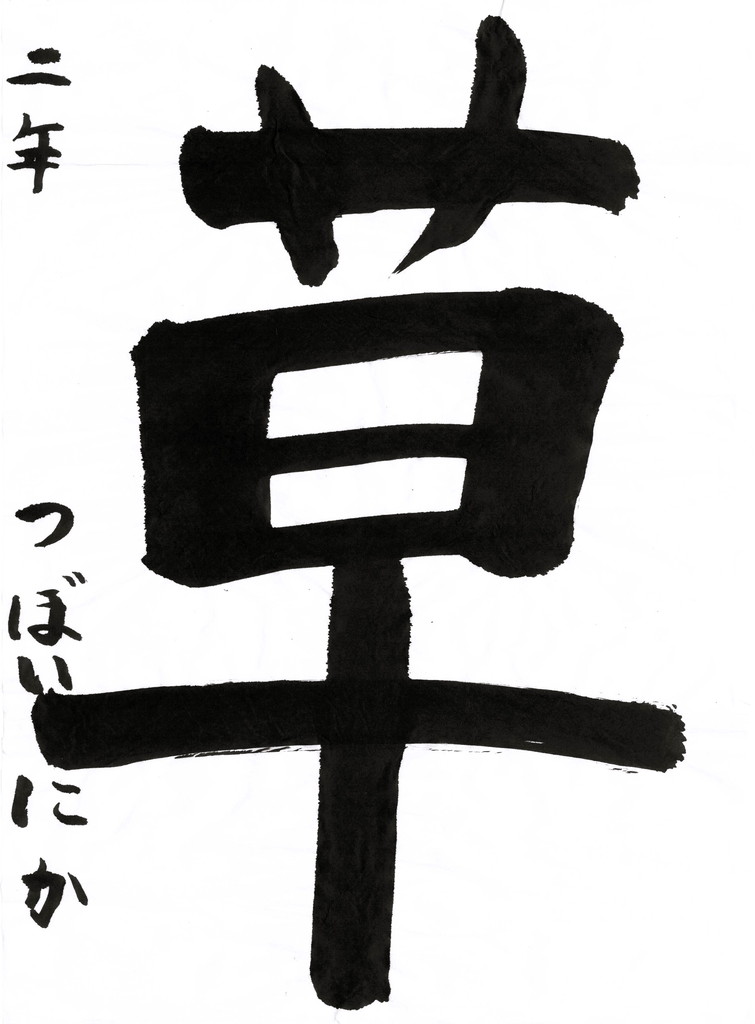 草
二年 つぼい にか